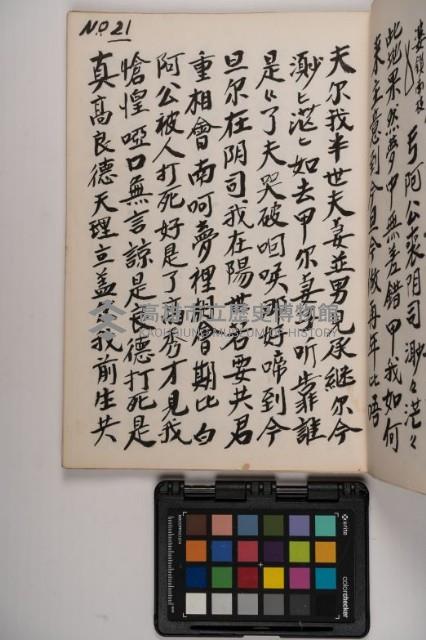 NO 21
夫尔我半世夫妻並男兒承继尔今
渺々茫々如去甲尔
是々了夫哭破咽喉那好啼到今
旦尔在阴司我在陽世若要共君
重相會南呵夢裡討會期比白
阿公被人打死好是了高秀才見我
愴惶啞口無言諒是良德打死是
真高良德天理立盖共我前生共
弓阿公裘阴司渺々茫々
此地果然夢甲無差錯甲我如何
來主意到今旦今做再年比唔
高雄市立歷史博物館
KAOHSIUNG MUSEUM OF HISTORY
x-rite
colorchecker